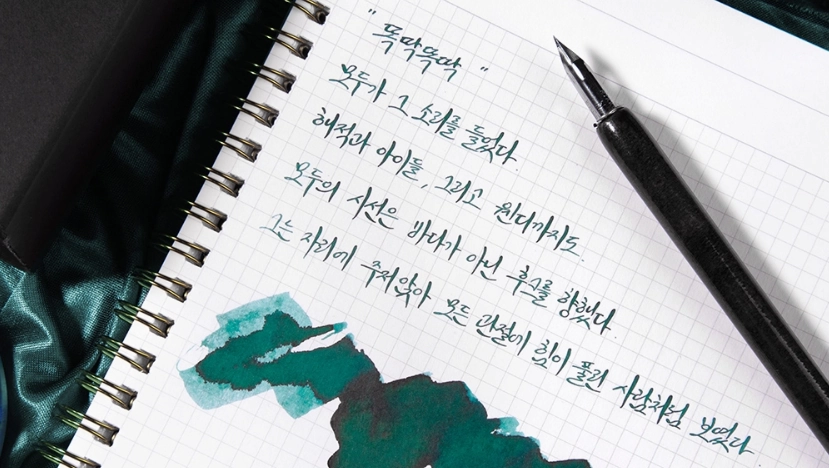 "똑딱똑딱"
모두가 그 소리를 들었다.
해적과 아이들, 그리고 웬디까지도.
모두의 시선은 바다가 아닌 후크를 향했다.
그는 자리에 주저앉아 모든 관절에 힘이 풀린 사람처럼 보였다.